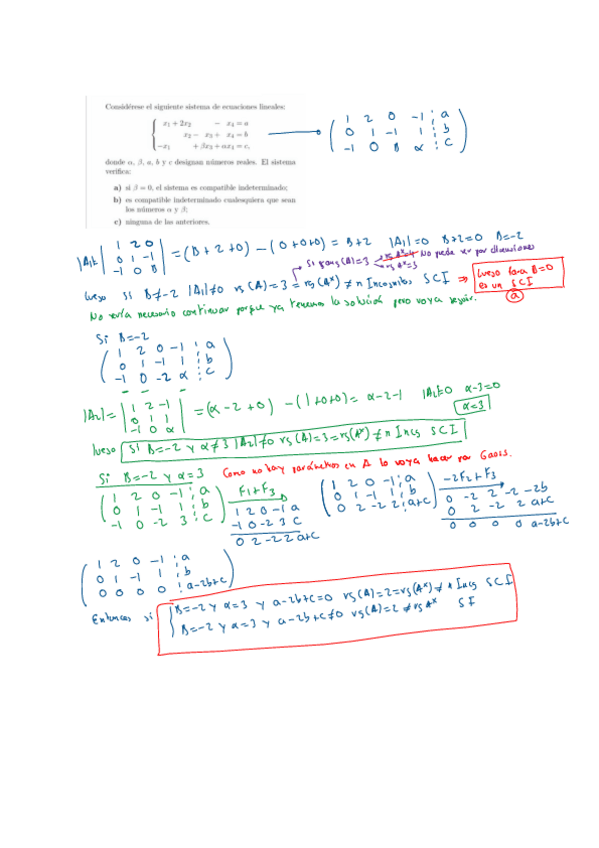 Considérese el siguiente sistema de ecuaciones lineales:
x₁ + 2x₂ − x₄ = a
x₂ − x₃ + x₄ = b
−x₁ + βx₃ + αx₄ = c,
donde α, β, a, b y c designan números reales. El sistema
verifica:
a) si β = 0, el sistema es compatible indeterminado;
b) es compatible indeterminado cualesquiera que sean
los números α y β;
c) ninguna de las anteriores.
1 2 0 -1 : a
0 1 -1 1 : b
-1 0 B α : c
|A₁|= | 1 2 0 | 0 1 -1 | -1 0 B | = (B+2+0) - (0+0+0) = B+2 |A₁|=0 B+2=0 B=-2
Si rang(A)=3 rg A*=4 No puede ser por dimensiones
rg A*=3
luego si B≠-2 |A₁|≠0 rg(A)=3=rg(A*)≠n Incognitas SCI ⇒ luego para B=0
es un SCI
a
No sería necesario continuar porque ya tenemos la solución pero voy a seguir.
Si B=-2
1 2 0 -1 : a
0 1 -1 1 : b
-1 0 -2 α : c
|A₂|= | 1 2 -1 | 0 1 1 | -1 0 α | = (α-2+0) - (1+0+0) = α-2-1 |A₂|=0 α-3=0
α=3
luego Si B=-2 y α≠3 |A₂|≠0 rg(A)=3=rg(A*)≠n Incgs SCI
Si B=-2 y α=3 Como no hay parámetros en A lo voy a hacer por Gauss.
1 2 0 -1 : a
0 1 -1 1 : b
-1 0 -2 3 : c
F1+F3
1 2 0 -1 a
-1 0 -2 3 c
0 2 -2 2 a+c
1 2 0 -1 : a
0 1 -1 1 : b
0 2 -2 2 : a+c
-2F2+F3
0 -2 2 -2 -2b
0 2 -2 2 a+c
0 0 0 0 a-2b+c
1 2 0 -1 : a
0 1 -1 1 : b
0 0 0 0 : a-2b+c
Entonces si B=-2 y α=3 y a-2b+c=0 rg(A)=2=rg(A*)≠n Incgs SCI
B=-2 y α=3 y a-2b+c≠0 rg(A)=2≠rg A* SI